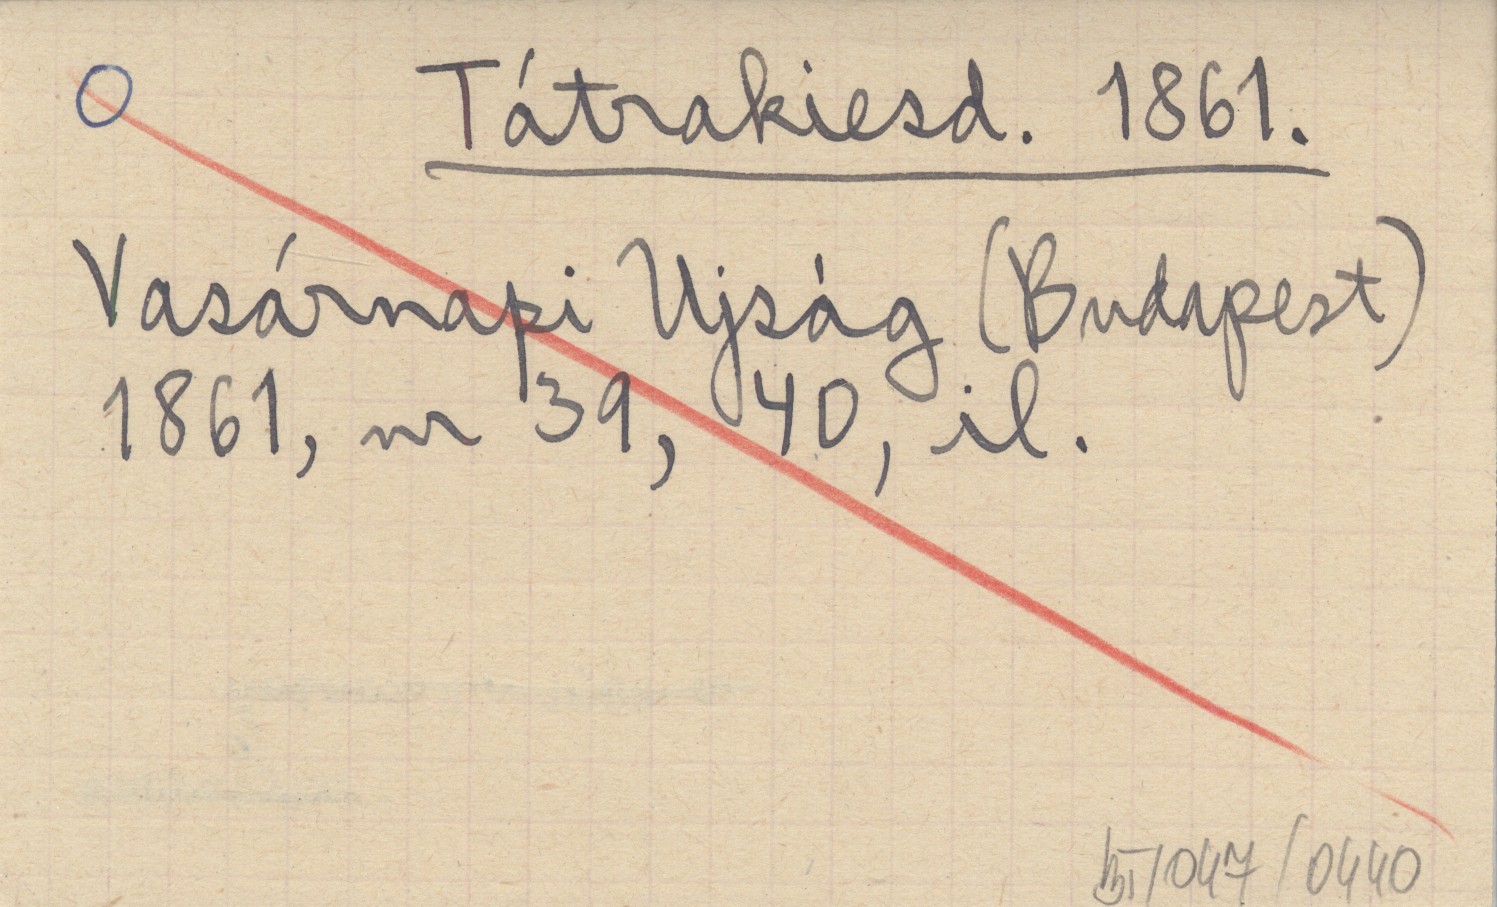 Tátrakiesd. 1861.
Vasárnapi Ujság (Budapest)
1861, nr 39, 40, il.
/047/0440